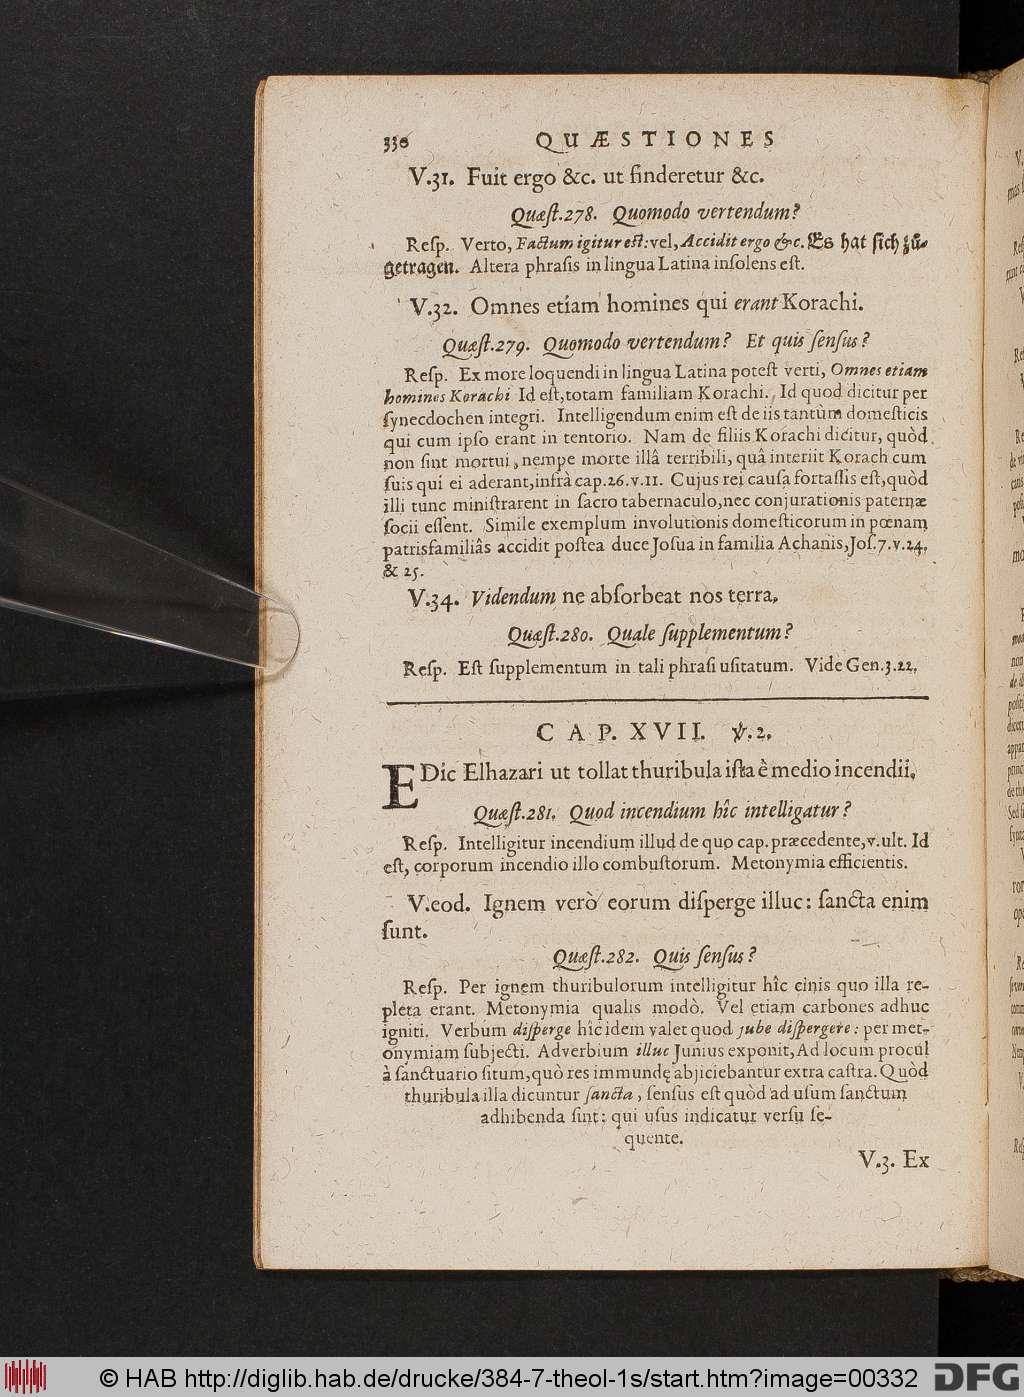 330 QUÆSTIONES
V.31. Fuit ergo &c. ut finderetur &c.
Quæſt.278. Quomodo vertendum?
Reſp. Verto, Factum igitur eſt: vel, Accidit ergo &c. Es hat ſich zu-
getragen. Altera phraſis in lingua Latina inſolens eſt.
V.32. Omnes etiam homines qui erant Korachi.
Quæſt.279. Quomodo vertendum? Et quis ſenſus?
Reſp. Ex more loquendi in lingua Latina poteſt verti, Omnes etiam
homines Korachi Id eſt, totam familiam Korachi. Id quod dicitur per
ſynecdochen integri. Intelligendum enim eſt de iis tantùm domeſticis
qui cum ipſo erant in tentorio. Nam de filiis Korachi dicitur, quòd
non ſint mortui, nempe morte illâ terribili, quâ interiit Korach cum
ſuis qui ei aderant, infrà cap.26.v.11. Cujus rei cauſa fortaſſis eſt, quòd
illi tunc miniſtrarent in ſacro tabernaculo, nec conjurationis paternæ
ſocii eſſent. Simile exemplum involutionis domeſticorum in pœnam
patrisfamiliâs accidit poſtea duce Joſua in familia Achanis, Joſ.7.v.24.
& 25.
V.34. Videndum ne abſorbeat nos terra.
Quæſt.280. Quale ſupplementum?
Reſp. Eſt ſupplementum in tali phraſi uſitatum. Vide Gen.3.22.
CAP. XVII. ℣.2.
EDic Elhazari ut tollat thuribula iſta è medio incendii.
Quæſt.281. Quod incendium hîc intelligatur?
Reſp. Intelligitur incendium illud de quo cap. præcedente, v. ult. Id
eſt, corporum incendio illo combuſtorum. Metonymia efficientis.
V.eod. Ignem verò eorum diſperge illuc: ſancta enim
ſunt.
Quæſt.282. Quis ſenſus?
Reſp. Per ignem thuribulorum intelligitur hîc cinis quo illa re-
pleta erant. Metonymia qualis modò. Vel etiam carbones adhuc
igniti. Verbum diſperge hîc idem valet quod jube diſpergere: per met-
onymiam ſubjecti. Adverbium illuc Junius exponit, Ad locum procul
à ſanctuario ſitum, quò res immundę abjiciebantur extra caſtra. Quòd
thuribula illa dicuntur ſancta, ſenſus eſt quòd ad uſum ſanctum
adhibenda ſint: qui uſus indicatur verſu ſe-
quente.
V.3. Ex
© HAB http://diglib.hab.de/drucke/384-7-theol-1s/start.htm?image=00332 DFG